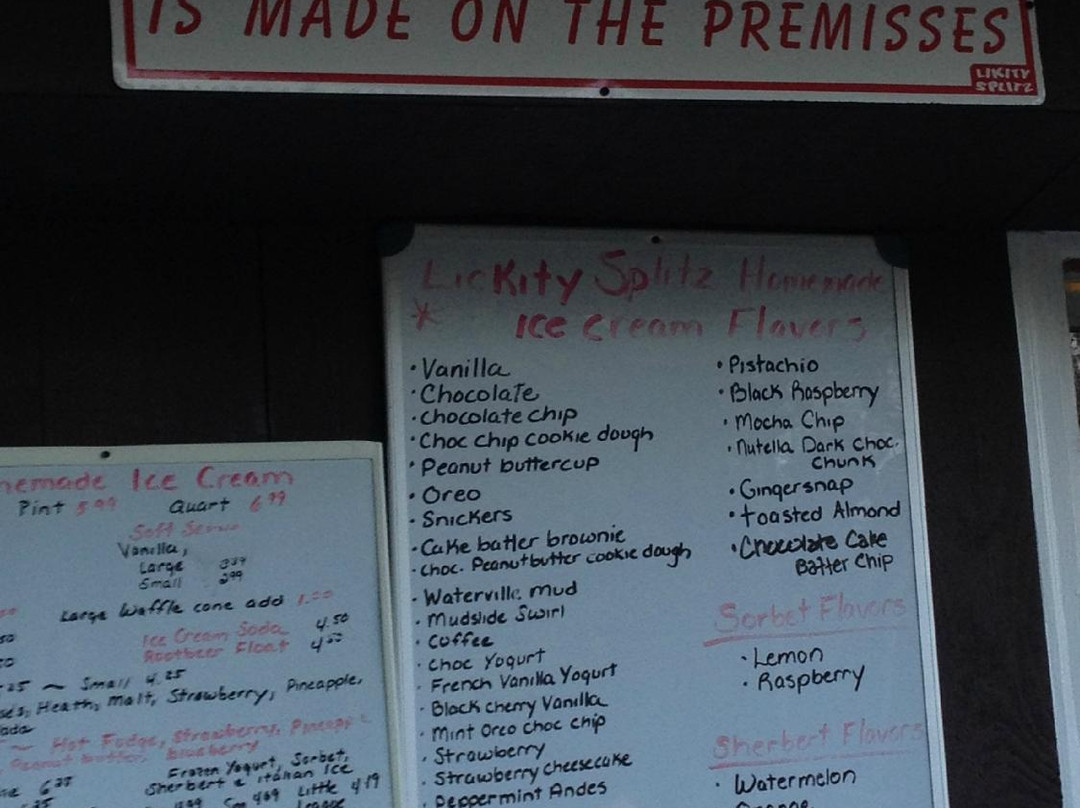 IS MADE ON THE PREMISSES
LIKITY
SPLITZ
Lickity Splitz Homemade
* Ice Cream Flavors
• Vanilla
• Chocolate
• Chocolate chip
• Choc chip cookie dough
• Peanut buttercup
• Oreo
• Snickers
• Cake batter brownie
• choc. Peanutbutter cookie dough
• Waterville mud
• Mudslide Swirl
• Coffee
• Choc Yogurt
• French Vanilla Yogurt
• Black cherry Vanilla
• Mint Oreo choc chip
• Strawberry
• Strawberry Cheesecake
• Peppermint Andes
• Pistachio
• Black Raspberry
• Mocha Chip
• Nutella Dark Choc.
Chunk
• Gingersnap
• toasted Almond
• Chocolate Cake
Batter Chip
Sorbet Flavors
• Lemon
• Raspberry
Sherbert Flavors
• Watermelon
Orange
memade Ice Cream
Pint 5.99 Quart 6.99
Soft Serve
Vanilla,
Large
Small
Large Waffle cone add 1.00
Ice Cream Soda 4.50
Rootbeer Float 4.50
~ Small 4.25
Heath, Malt, Strawberry, Pineapple,
~ Hot Fudge, Strawberry, Pineapple
Peanut butter, blueberry
Frozen Yogurt, Sorbet,
Sherbert & Italian Ice
Little 4.19
League